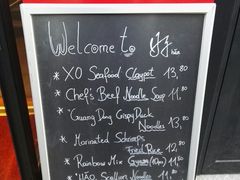 Welcome to
hăo
* XO Seafood Claypot 13,80
* Chef's Beef Noodle Soup 11,80
* Guang Dng Crispy Duck
Noodles 13,80
* Marinated Schrimps
Fried Rice 12,80
* Rainbow Mix Gyoza 11,80
* HÃO Scallion Noodles